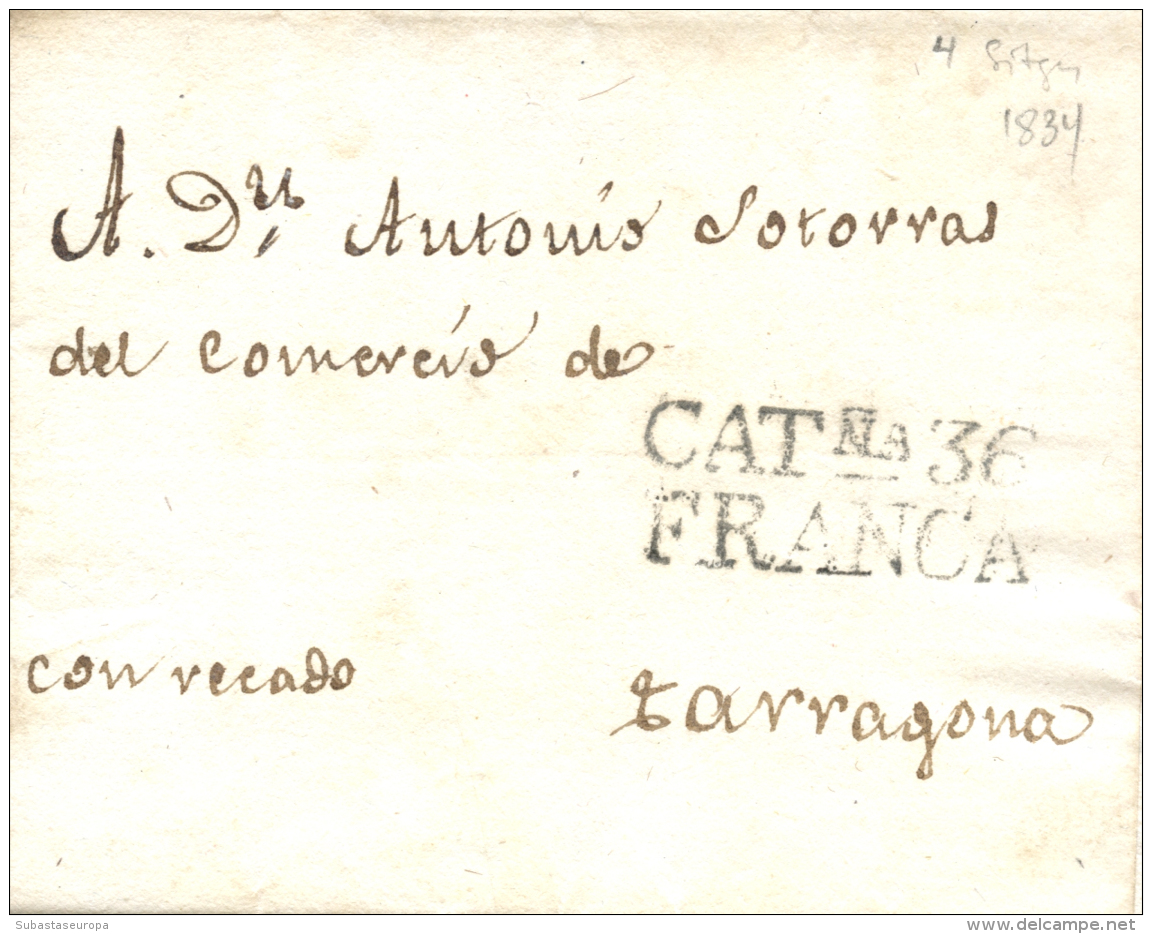 4 Sitges
1834
A. Dn. Antonio Sotorras
del Comercio de
CATÑA 36
FRANCA
con recado
tarragona
Subastaseuropa
www.delcampe.net